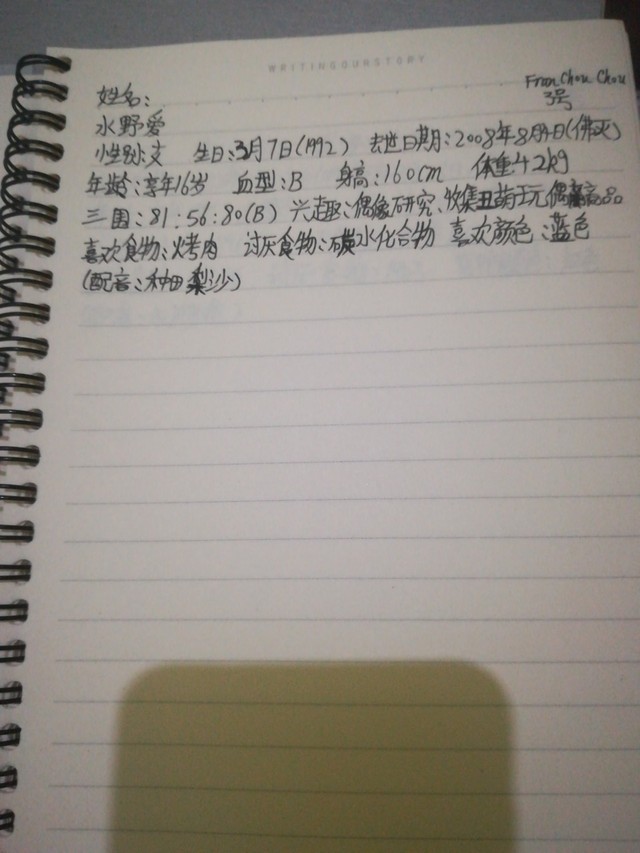 WRITINGOURSTORY
Fran Chou Chou
3号
姓名:
水野爱
性别:女 生日:3月7日(1992) 去世日期:2008年8月4日(佛灭)
年龄:享年16岁 血型:B 身高:160cm 体重42kg
三围:81:56:80(B) 兴趣:偶像研究、收集丑萌玩偶商品
喜欢食物:烤肉 讨厌食物:碳水化合物 喜欢颜色:蓝色
(配音:种田梨沙)